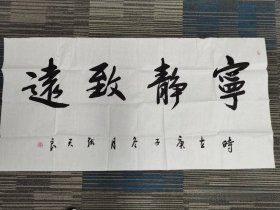 寧靜致遠
時在庚子冬月張天民